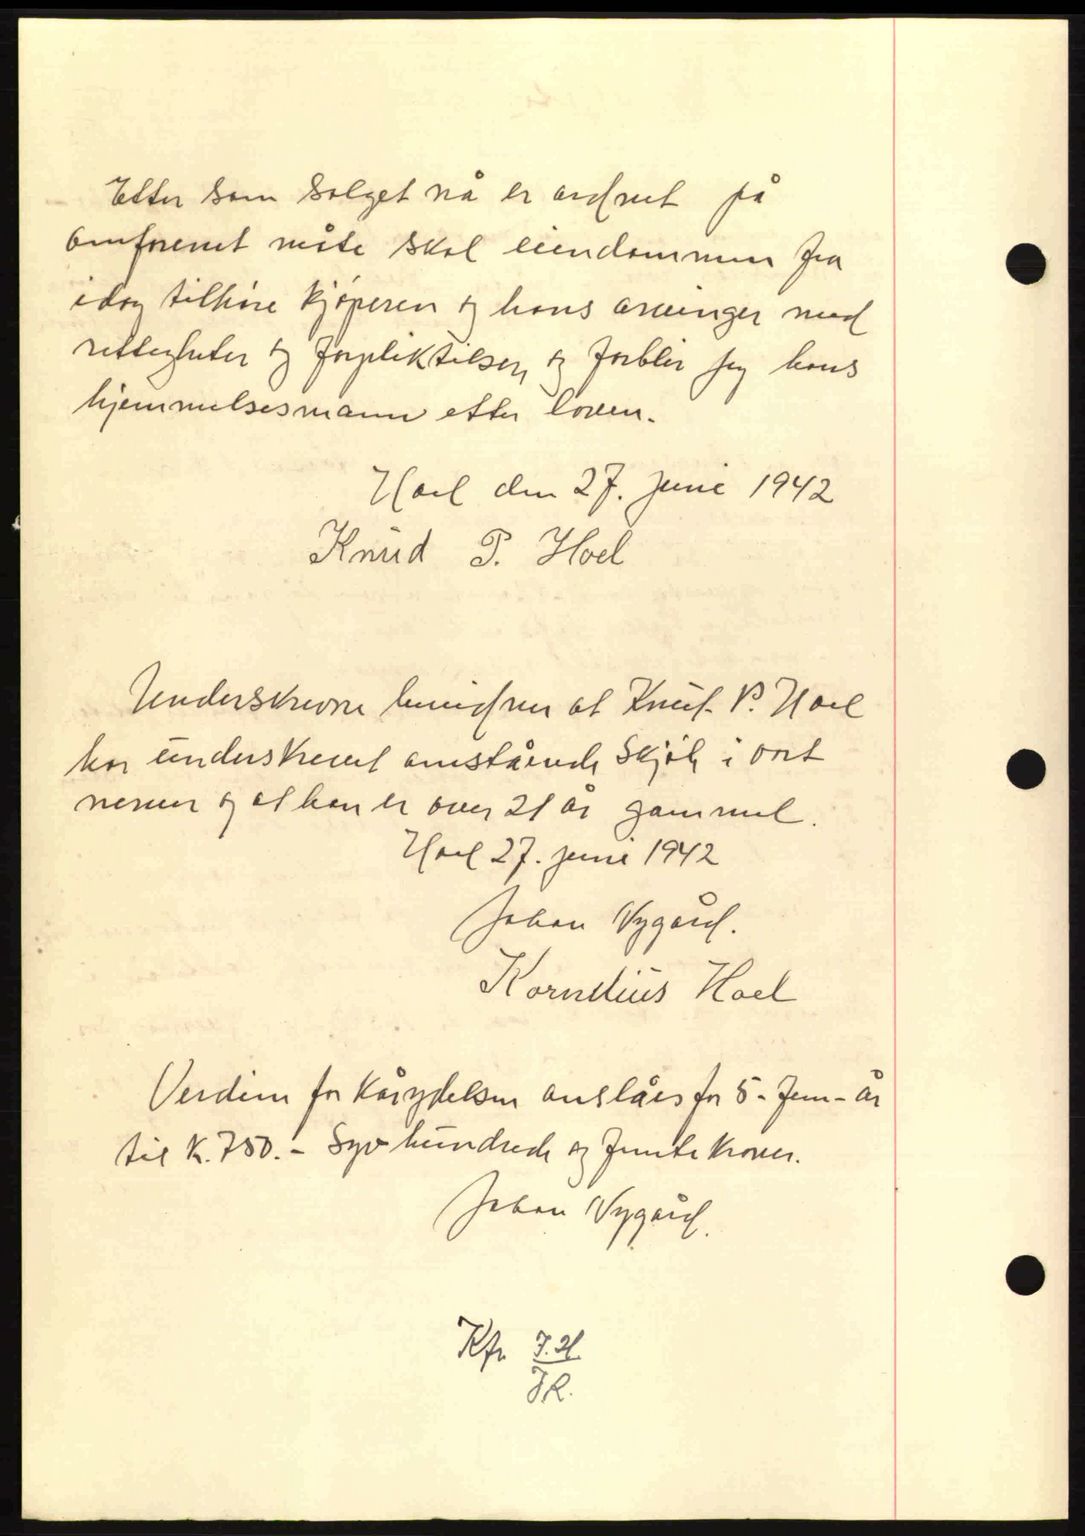 Etter som salget nå er ordnet på
omforenet måte skal eiendommen fra
idag tilhøre kjøperen og hans arvinger med
rettigheter og forpliktilser, og forblir jeg hans
hjemmelsesmann etter loven.
Hoel den 27. juni 1942
Knud P. Hoel
Underskrevne bevidner at Knut P. Hoel
har underskrevet omstående skjøte i vort
nerver og at han er over 21 år gammel.
Hoel 27. juni 1942
Johan Nygård.
Kornelius Hoel
Verdien for kårydelsen anslåes for 5 - fem - år
til K. 750. - Syv hundrede og femti kroner.
Johan Nygård.
Kfr.